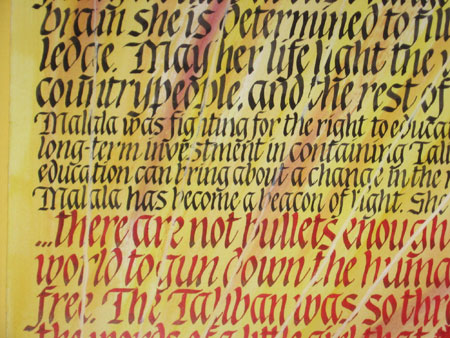 brain she is determined to fill
ledge. May her life light the
countrypeople, and the rest of
Malala was fighting for the right to educa
long-term investment in containing Tali
education can bring about a change in the
Malala has become a beacon of light. She
...there are not bullets enough
world to gun down the huma
free. The Taliban was so thre
the words of a little girl that